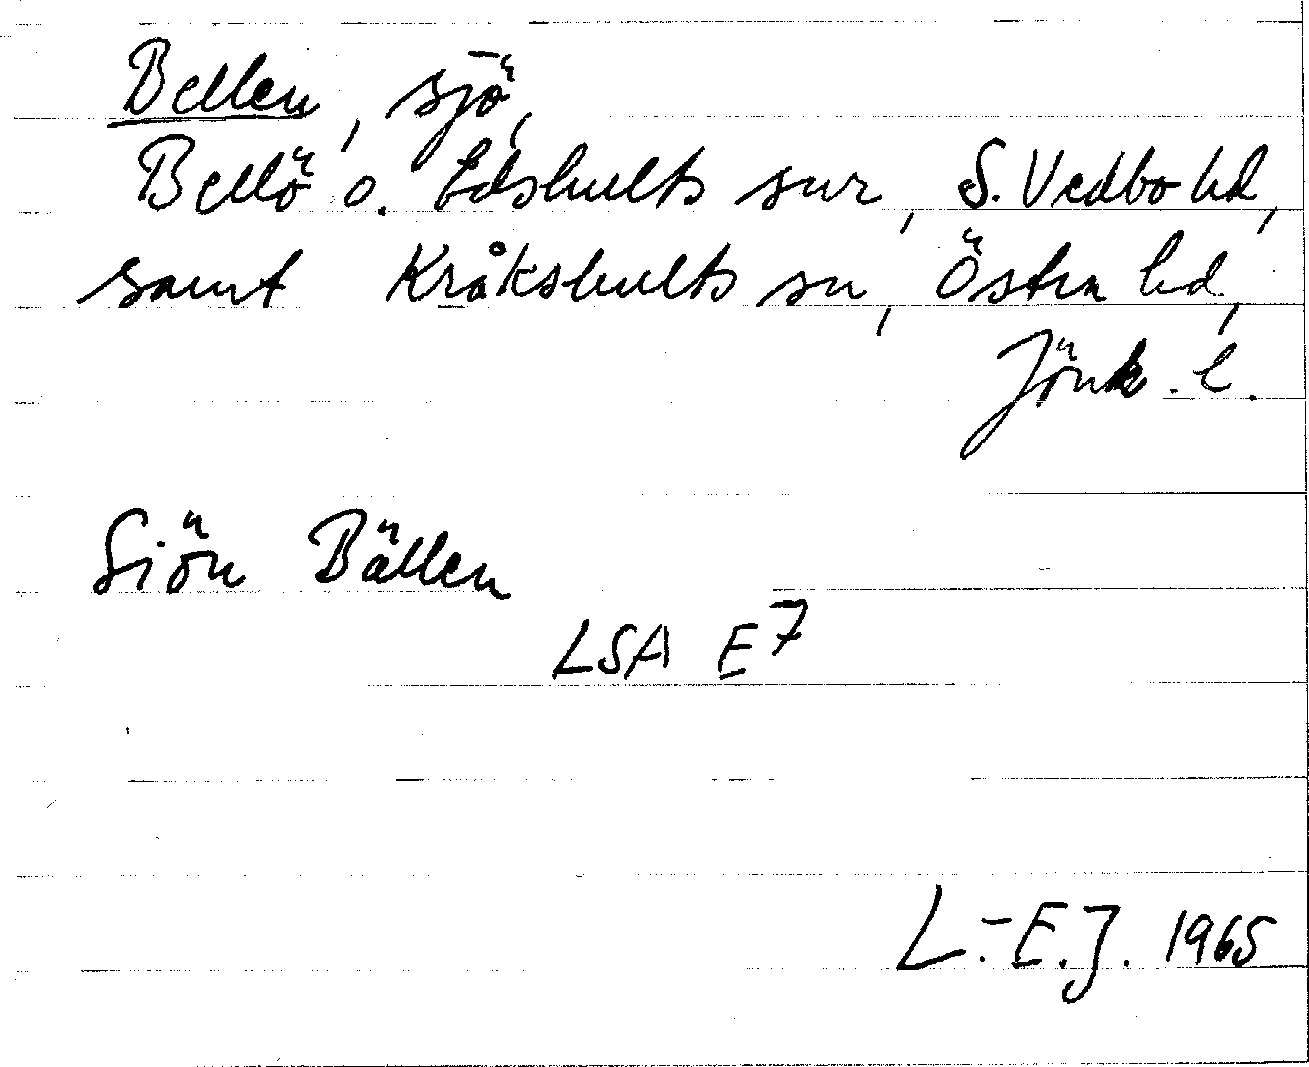 Bellen, sjö,
Bellö o. Edshults snr, S. Vedbo hd,
samt Kråkshults sn, Östra hd,
Jönk. l.
Siön Bällen
LSA E7
L.-E.J. 1965